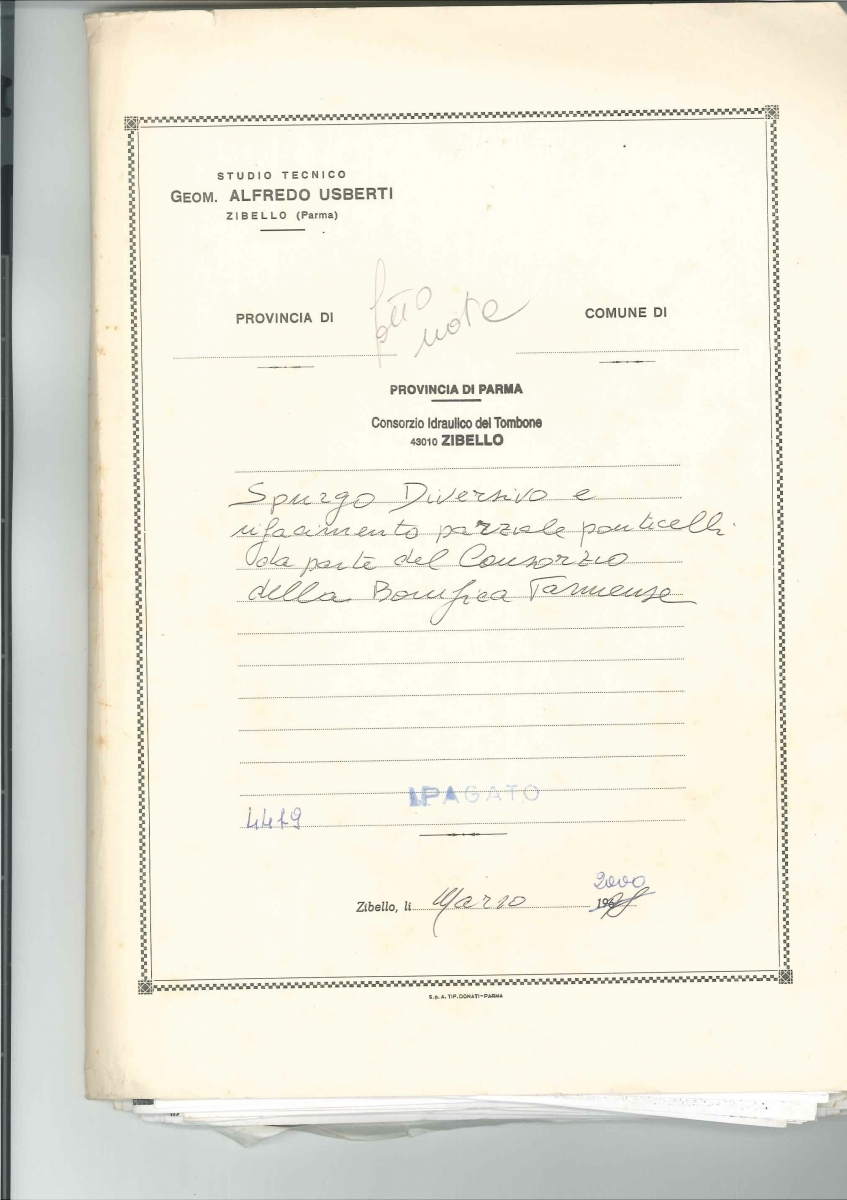 STUDIO TECNICO
GEOM. ALFREDO USBERTI
ZIBELLO (Parma)
fatto
note
PROVINCIA DI
COMUNE DI
PROVINCIA DI PARMA
Consorzio Idraulico del Tombone
43010 ZIBELLO
Spurgo Diversivo e
rifacimento parziale ponticelli
da parte del Consorzio
della Bonifica Parmense
PAGATO
4479
2000
Zibello, li Marzo 19
S.p.A. TIP. DONATI - PARMA